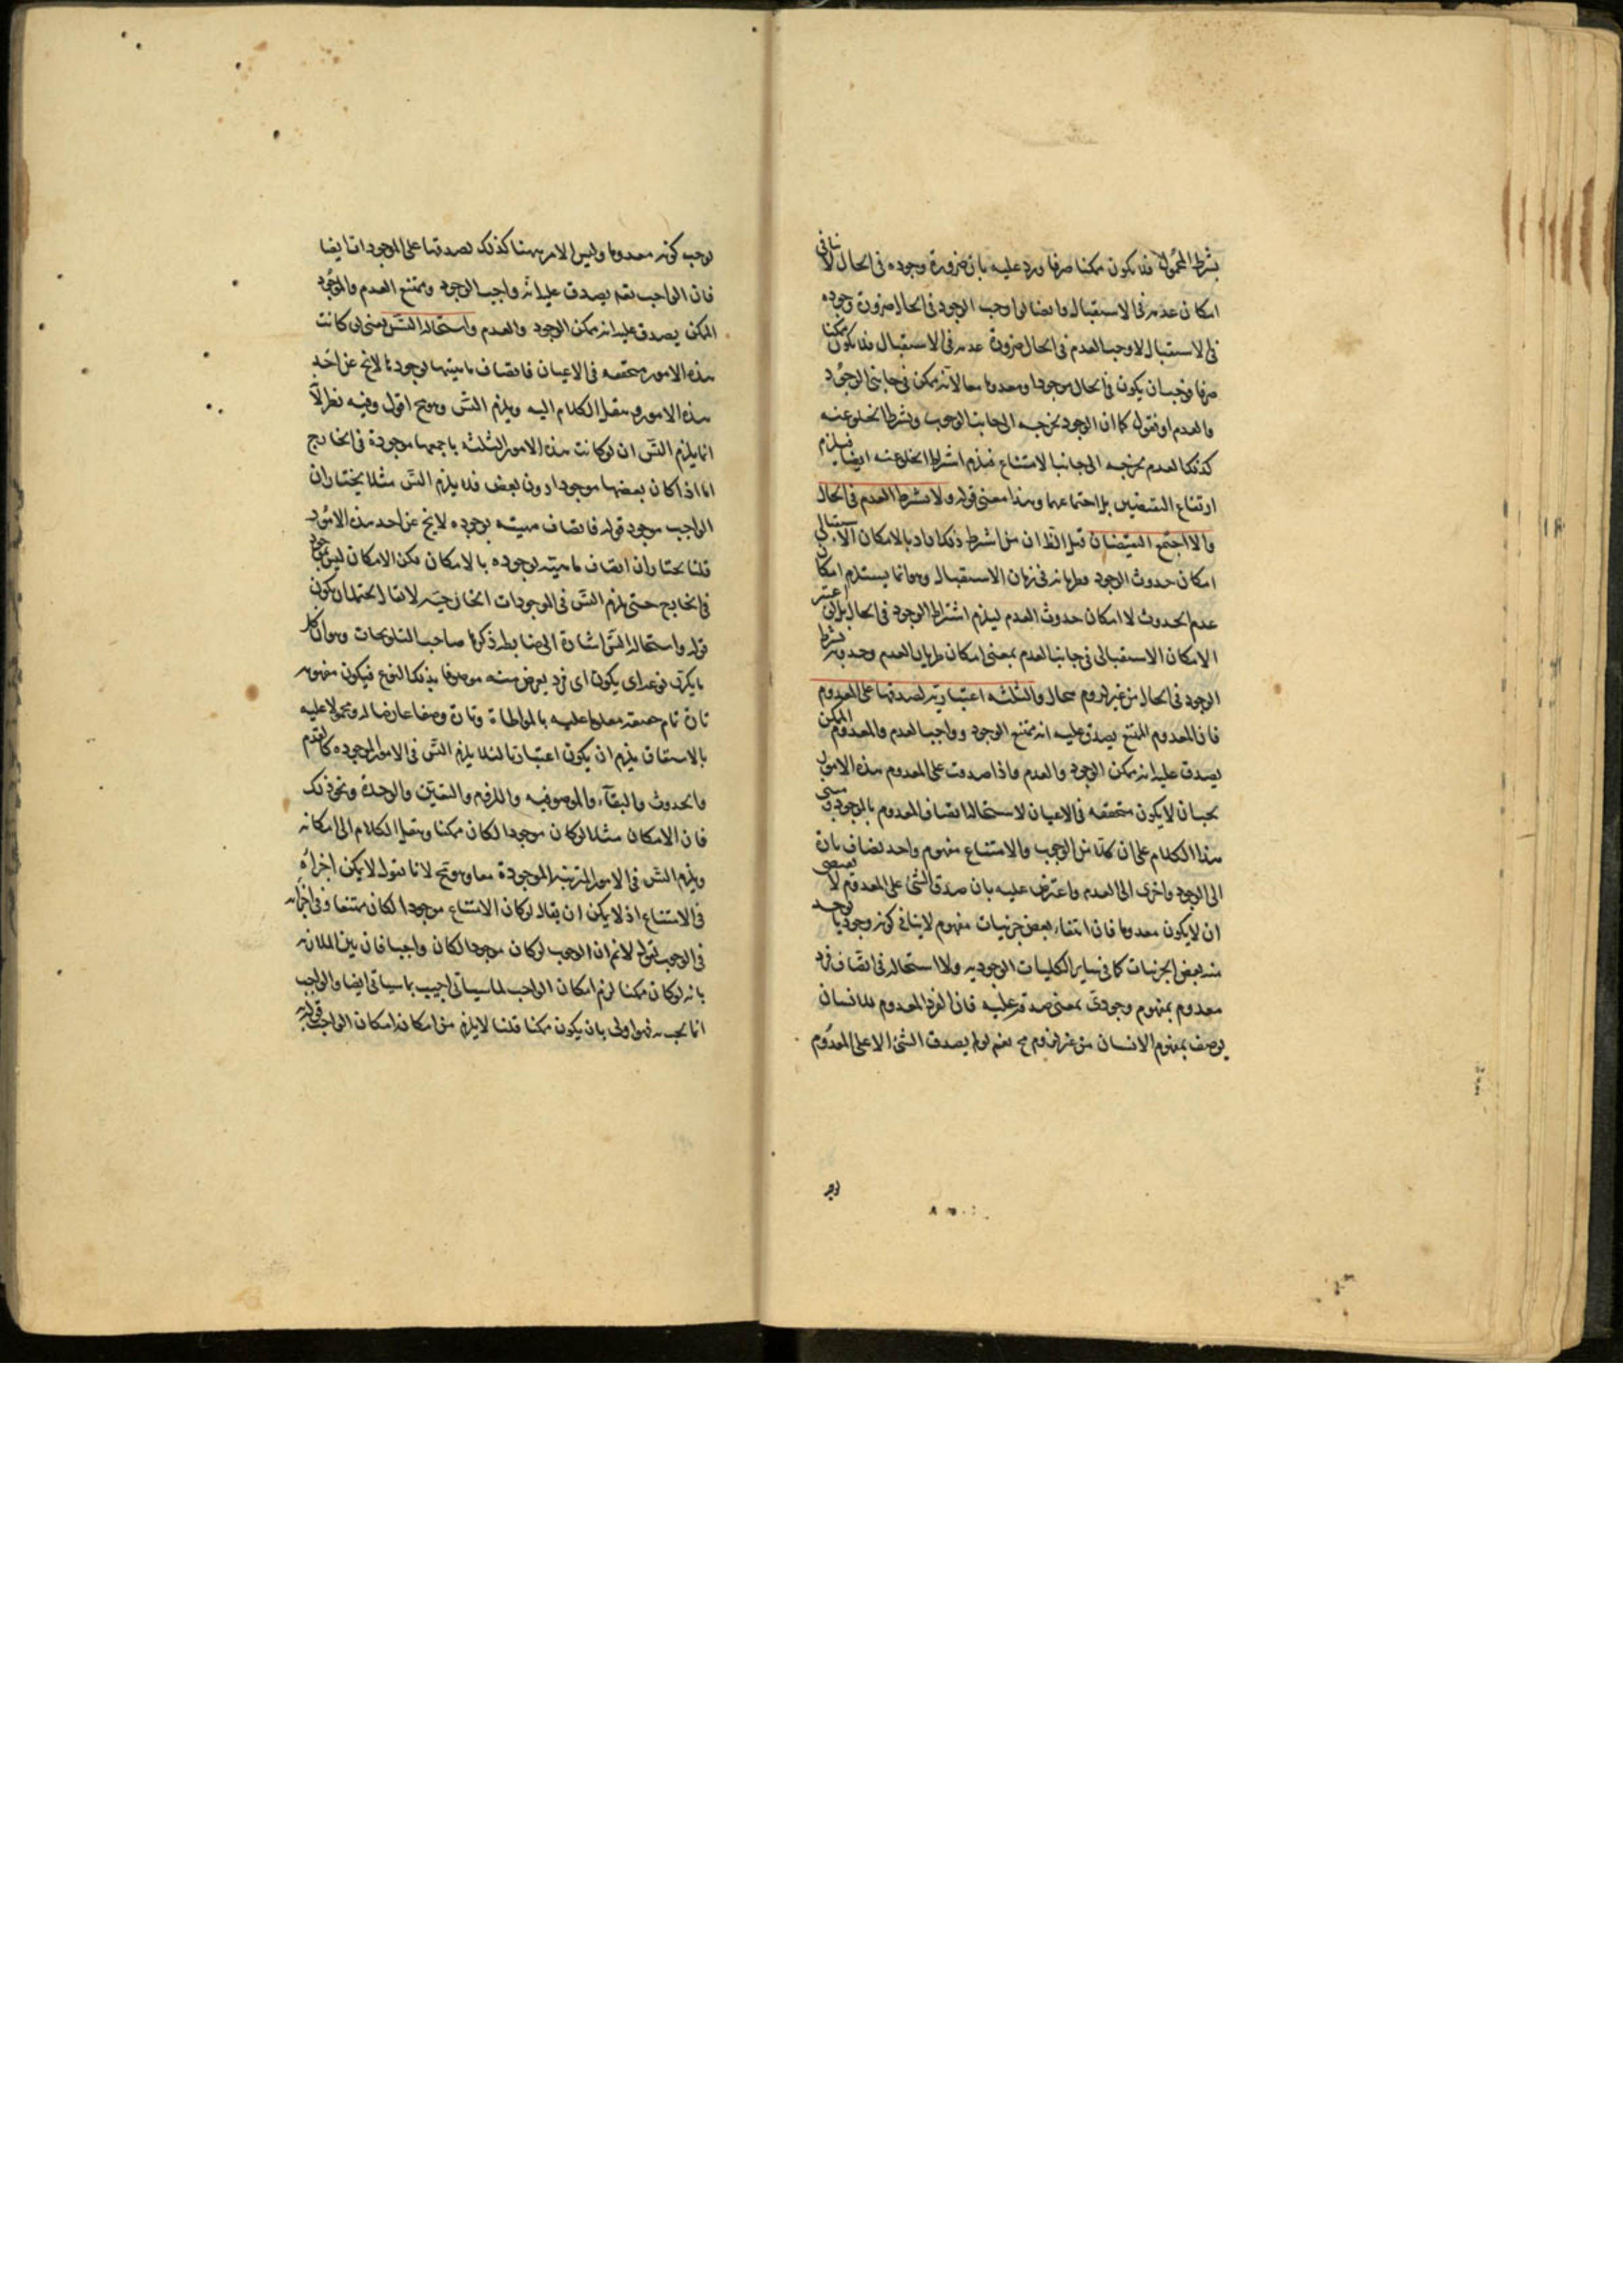 بشرط المحمول فلا يكون ممكنا صرفا ورد عليه بان ضرورة وجوده فى الحال لا ينافى
امكان عدمه فى الاستقبال وايضا لو اوجب الوجود فى الحال ضرورة وجوده
فى الاستقبال لاوجب العدم فى الحال ضرورة عدمه فى الاستقبال فلا يكون ممكنا
صرفا فوجب ان يكون فى الحال موجودا ومعدوما معا لانه ممكن فى جانبى الوجود
والعدم او نقول كما ان الوجود يخرجه الى جانب الوجوب ويشرط الخلو عنه
كذلك العدم يخرجه الى جانب الامتناع فيلزم اشتراط الخلو عنه ايضا فيلزم
ارتفاع النقيضين بل اجتماعهما وهذا معنى قوله ولا يشترط العدم فى الحال
والا اجتمع النقيضان قيل الظ ان من اشترط ذلك اراد بالامكان الاستقبالى
امكان حدوث الوجود وطريانه فى زمان الاستقبال وهو انما يستلزم امكان
عدم الحدوث لا امكان حدوث العدم ليلزم اشتراط الوجود فى الحال بل لو اعتبر
الامكان الاستقبالى فى جانب العدم بمعنى امكان طريان العدم وحدوثه يشترط
الوجود فى الحال من غير لزوم محال والثلثة اعتبارية لصدقها على المعدوم
فان المعدوم الممتنع يصدق عليه انه ممتنع الوجود وواجب العدم والمعدوم الممكن
يصدق عليه انه ممكن الوجود والعدم واذا صدقت على المعدوم هذه الامور
يجب ان لا يكون متحققه فى الاعيان لاستحالة اتصاف المعدوم بالموجود مبنى
هذا الكلام على ان كلا من الوجوب والامتناع مفهوم واحد يضاف تارة
الى الوجود واخرى الى العدم واعترض عليه بان صدق الشئ على المعدوم لا يقتضى
ان لا يكون معدوما فان انتفاء بعض جزئيات مفهوم لا ينافى كونه وجوديا يوجد
منه بعض الجزئيات كما فى ساير الكليات الوجوديه ولا استحالة فى اتصاف فرد
معدوم بمفهوم وجودى بمعنى صدقه عليه فان الفرد المعدوم للانسان
يوصف بمفهوم الانسان من غير لزوم مح نعم لو لم يصدق الشئ الا على المعدوم
لوجب كونه معدوما وليس الامر ههنا كذلك لصدقها على الموجودات ايضا
فان الواجب تعم يصدق عليه انه واجب الوجود وممتنع العدم والموجود
الممكن يصدق عليه انه ممكن الوجود والعدم واستحالة التس يعنى لو كانت
هذه الامور متحققه فى الاعيان فاتصاف ماهيتها بوجودها لا يخ عن احد
هذه الامور وينقل الكلام اليه ويلزم التس وهو مح اقول وفيه نظر لانه
انما يلزم التس ان لو كانت هذه الامور الثلثة باجمعها موجودة فى الخارج
اما اذا كان بعضها موجودا دون بعض فلا يلزم التس مثلا يختار ان
الواجب موجود قوله فاتصاف مهيته بوجوده لا يخ عن احد هذه الامور
قلنا يختار ان اتصاف ماهيته بوجوده بالامكان لكن الامكان ليس بموجود
فى الخارج حتى يلزم التس فى الموجودات الخارجيه لا يقال يحتمل ان يكون
قوله واستحالة التس اشارة الى ضابطه ذكرها صاحب التلويحات وهو ان كل
ما يكرر نوعه اى يكون اى فرد يعرض منه موصوفا بذلك النوع فيكون مفهومه
تارة تمام حقيقته محمولا عليه بالمواطاة وتارة وصفا عارضا له ومحمولا عليه
بالاشتقاق يلزم ان يكون اعتباريا لئلا يلزم التس فى الامور الموجوده كالقدم
والحدوث والبقآء والموصوفيه واللزوم والتعين والوحدة ونحو ذلك
فان الامكان مثلا لو كان موجودا لكان ممكنا وينقل الكلام الى امكانه
ويلزم التس فى الامور المترتبة الموجودة معا وهو مح لانا نقول لا يمكن اجراؤه
فى الامتناع اذ لا يمكن ان يقال لو كان الامتناع موجودا لكان ممتنعا وفى اجرائه
فى الوجوب نقول لانم ان الوجوب لو كان موجودا لكان واجبا فان بين الملازمه
بانه لو كان ممكنا لزم امكان الواجب لما سياتى اجيب بما سياتى ايضا والواجب
انما يجب به فهو اولى بان يكون ممكنا قلنا لا يلزم من امكانه امكان الواجب قوله